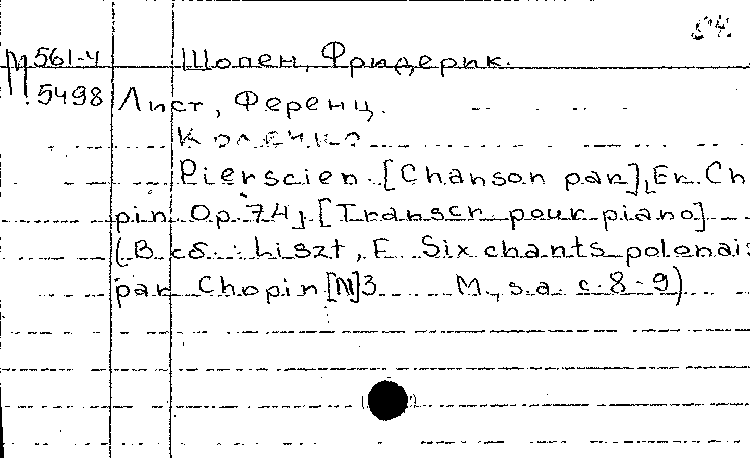 М 561-4 Шопен, Фридерик.
5498 Лист, Ференц.
Колечко
Pierscien. [Chanson par], Er. Cho
pin. Op. 74, [Transcr. pour piano]
(В сб.: Liszt, F. Six chants polonais
par Chopin [N]3 M., s.a. с. 8-9)